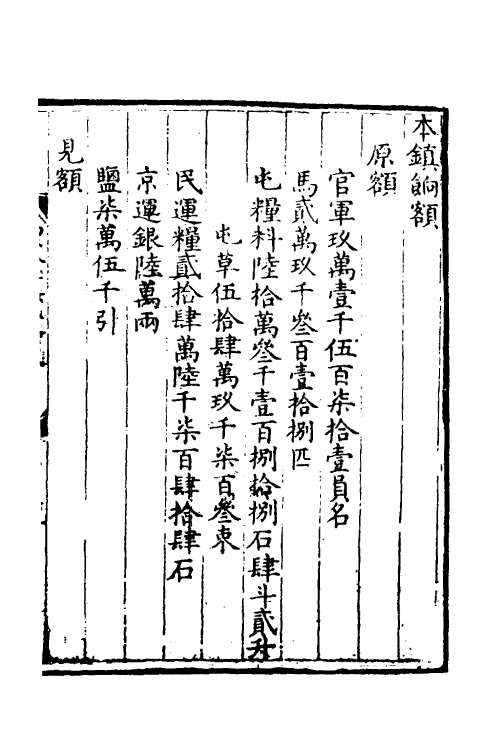 本鎮餉額
原額
官軍玖萬壹千伍百柒拾壹員名
馬貳萬玖千叄百壹拾捌匹
屯糧料陸拾萬叄千壹百捌拾捌石肆斗貳升
屯草伍拾肆萬玖千柒百叄束
民運糧貳拾肆萬陸千柒百肆拾肆石
京運銀陸萬兩
鹽柒萬伍千引
見額